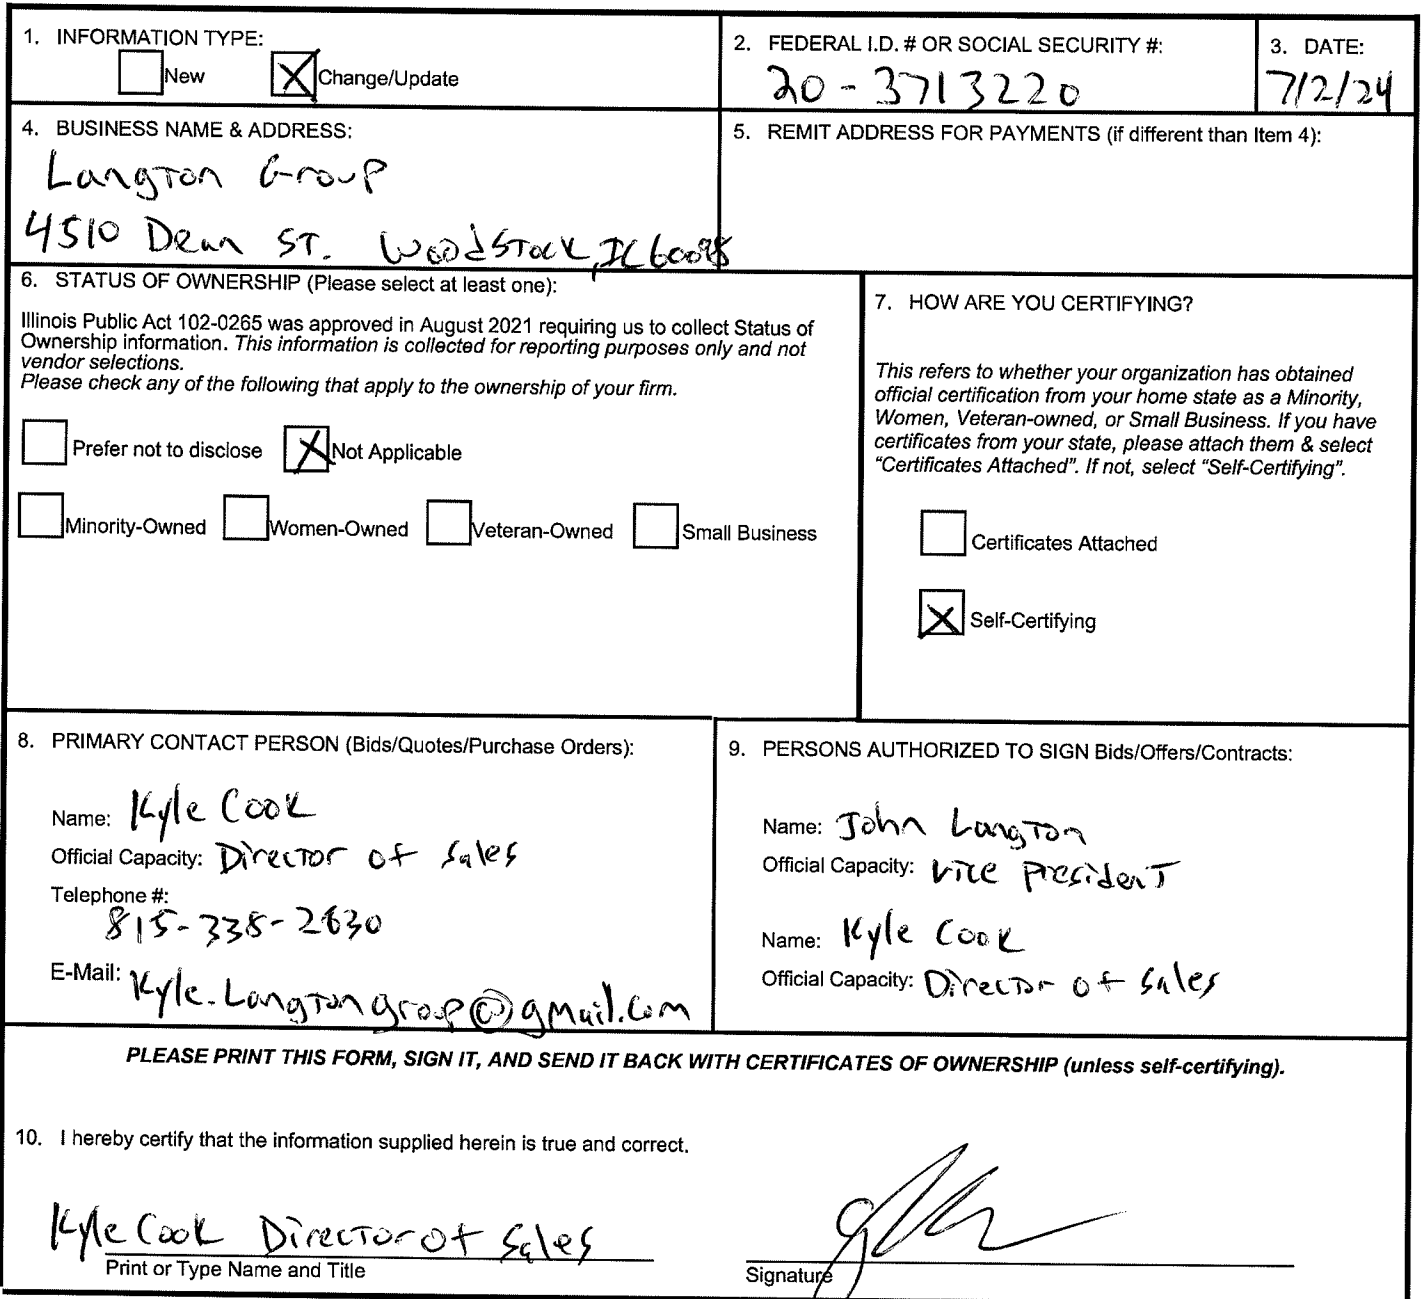 1. INFORMATION TYPE:
New
Change/Update
2. FEDERAL I.D. # OR SOCIAL SECURITY #:
20-3713220
3. DATE:
7/2/24
4. BUSINESS NAME & ADDRESS:
Langton Group
4510 Dean ST. Woodstock, IL 60098
5. REMIT ADDRESS FOR PAYMENTS (if different than Item 4):
6. STATUS OF OWNERSHIP (Please select at least one):
Illinois Public Act 102-0265 was approved in August 2021 requiring us to collect Status of
Ownership information. This information is collected for reporting purposes only and not
vendor selections.
Please check any of the following that apply to the ownership of your firm.
Prefer not to disclose
Not Applicable
Minority-Owned
Women-Owned
Veteran-Owned
Small Business
7. HOW ARE YOU CERTIFYING?
This refers to whether your organization has obtained
official certification from your home state as a Minority,
Women, Veteran-owned, or Small Business. If you have
certificates from your state, please attach them & select
"Certificates Attached". If not, select "Self-Certifying".
Certificates Attached
Self-Certifying
8. PRIMARY CONTACT PERSON (Bids/Quotes/Purchase Orders):
Name: Kyle Cook
Official Capacity: Director of Sales
Telephone #:
815-338-2630
E-Mail: Kyle.Langtongroup@gmail.com
9. PERSONS AUTHORIZED TO SIGN Bids/Offers/Contracts:
Name: John Langton
Official Capacity: Vice President
Name: Kyle Cook
Official Capacity: Director of Sales
PLEASE PRINT THIS FORM, SIGN IT, AND SEND IT BACK WITH CERTIFICATES OF OWNERSHIP (unless self-certifying).
10. I hereby certify that the information supplied herein is true and correct.
Kyle Cook Director of Sales
Print or Type Name and Title
Signature